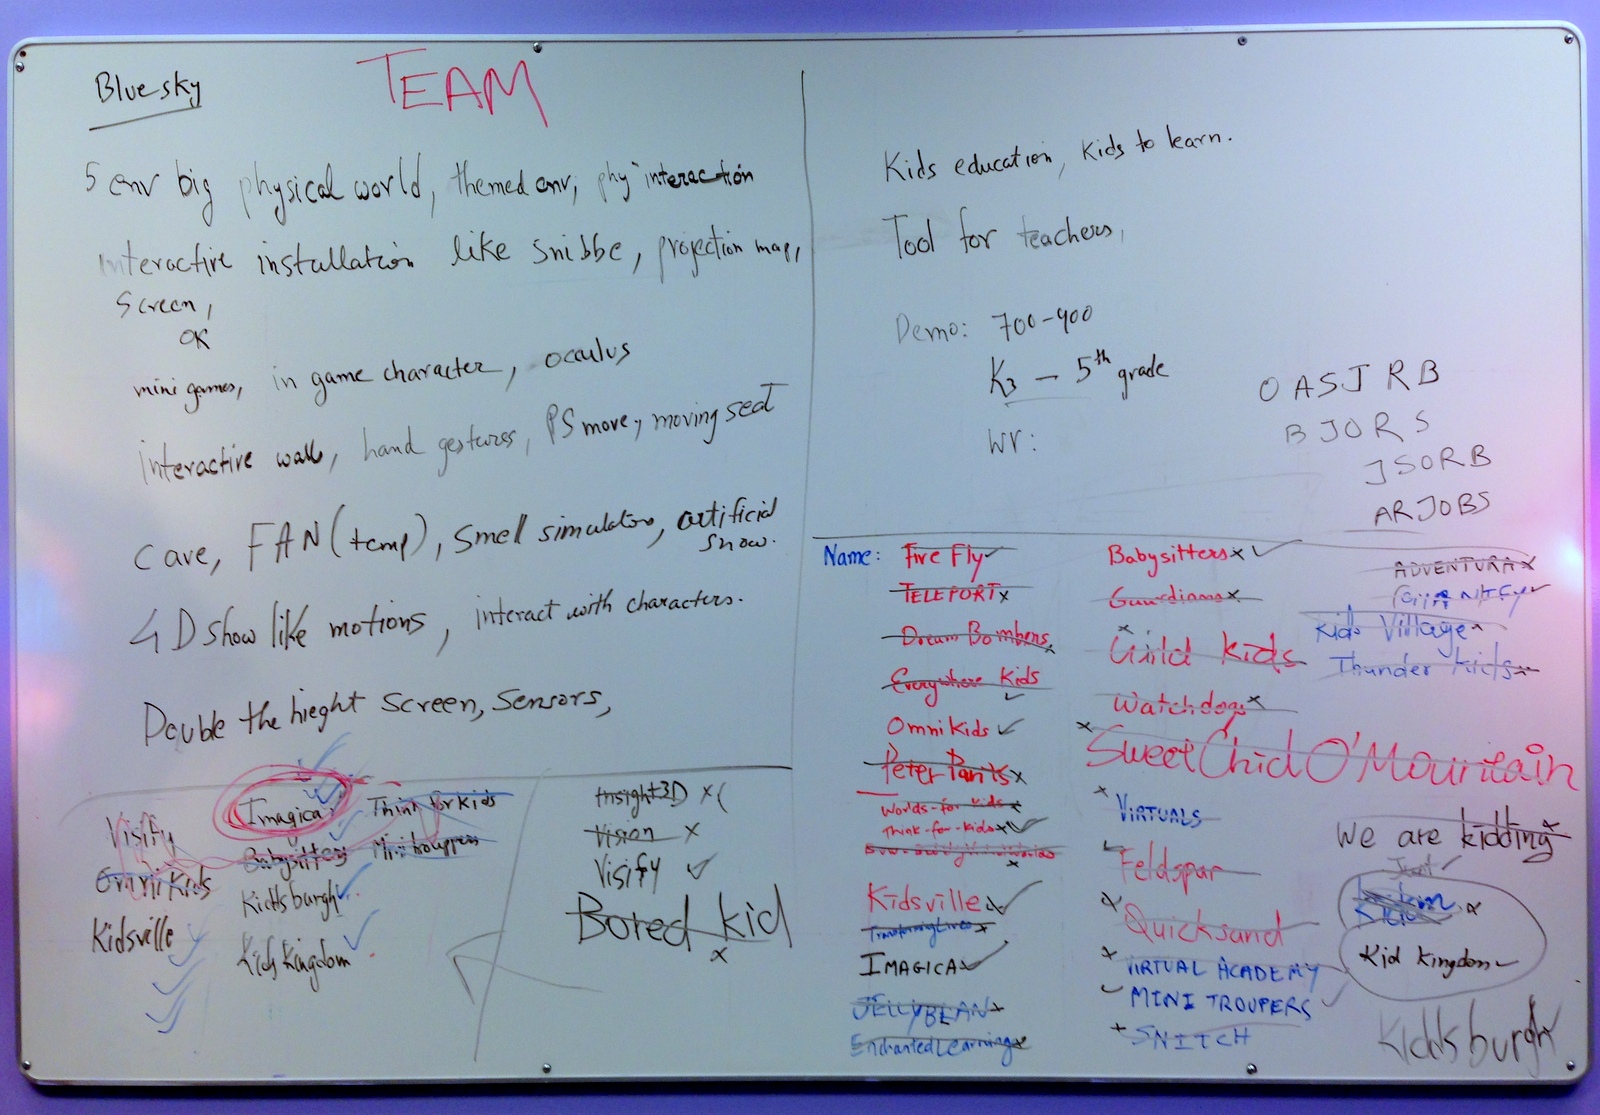 Bluesky
TEAM
5 env big physical world, themed env, phy interaction
interactive installation like snibbe, projection map,
screen,
OK
mini games, in game character, occulus
interactive walls, hand gestures, PS move, moving seat
cave, FAN (temp), smell simulators, artificial
snow.
4D show like motions, interact with characters.
Double the hieght screen, sensors,
Kids education, Kids to learn.
Tool for teachers,
Demo: 700-900
K3 - 5th grade
WV:
OASJRB
BJORS
JSORB
ARJOBS
Visify
Omni Kids
Kidsville
Imagica
Babysitters
Kiddsburgh
Kids Kingdom
Think for kids
Mini trouppers
Insight3D x(
Vision x
Visify ✓
Bored kid
x
Name: Fire Fly ✓
TELEPORT x
Dream Bombers x
Everywhere Kids
✓
Omni Kids ✓
Peter Pants x
Worlds-for kids x
Think-for-kids x ✓
Kidsville x ✓
Transforming Lives x
IMAGICA ✓
JELLYBEAN x
Enchanted Learning x
Babysitters x ✓
Guardians x
x
Guild kids
Watchdogs x
x Sweet Chid O'Mountain
x VIRTUALS
Feldspar
x Quicksand
x VIRTUAL ACADEMY
✓ MINI TROUPERS ✓
x SNITCH
ADVENTURA x
Kids Village x
Thunder Kids
We are kidding x
Just ✓
Kid kingdom ✓
Kiddsburgh